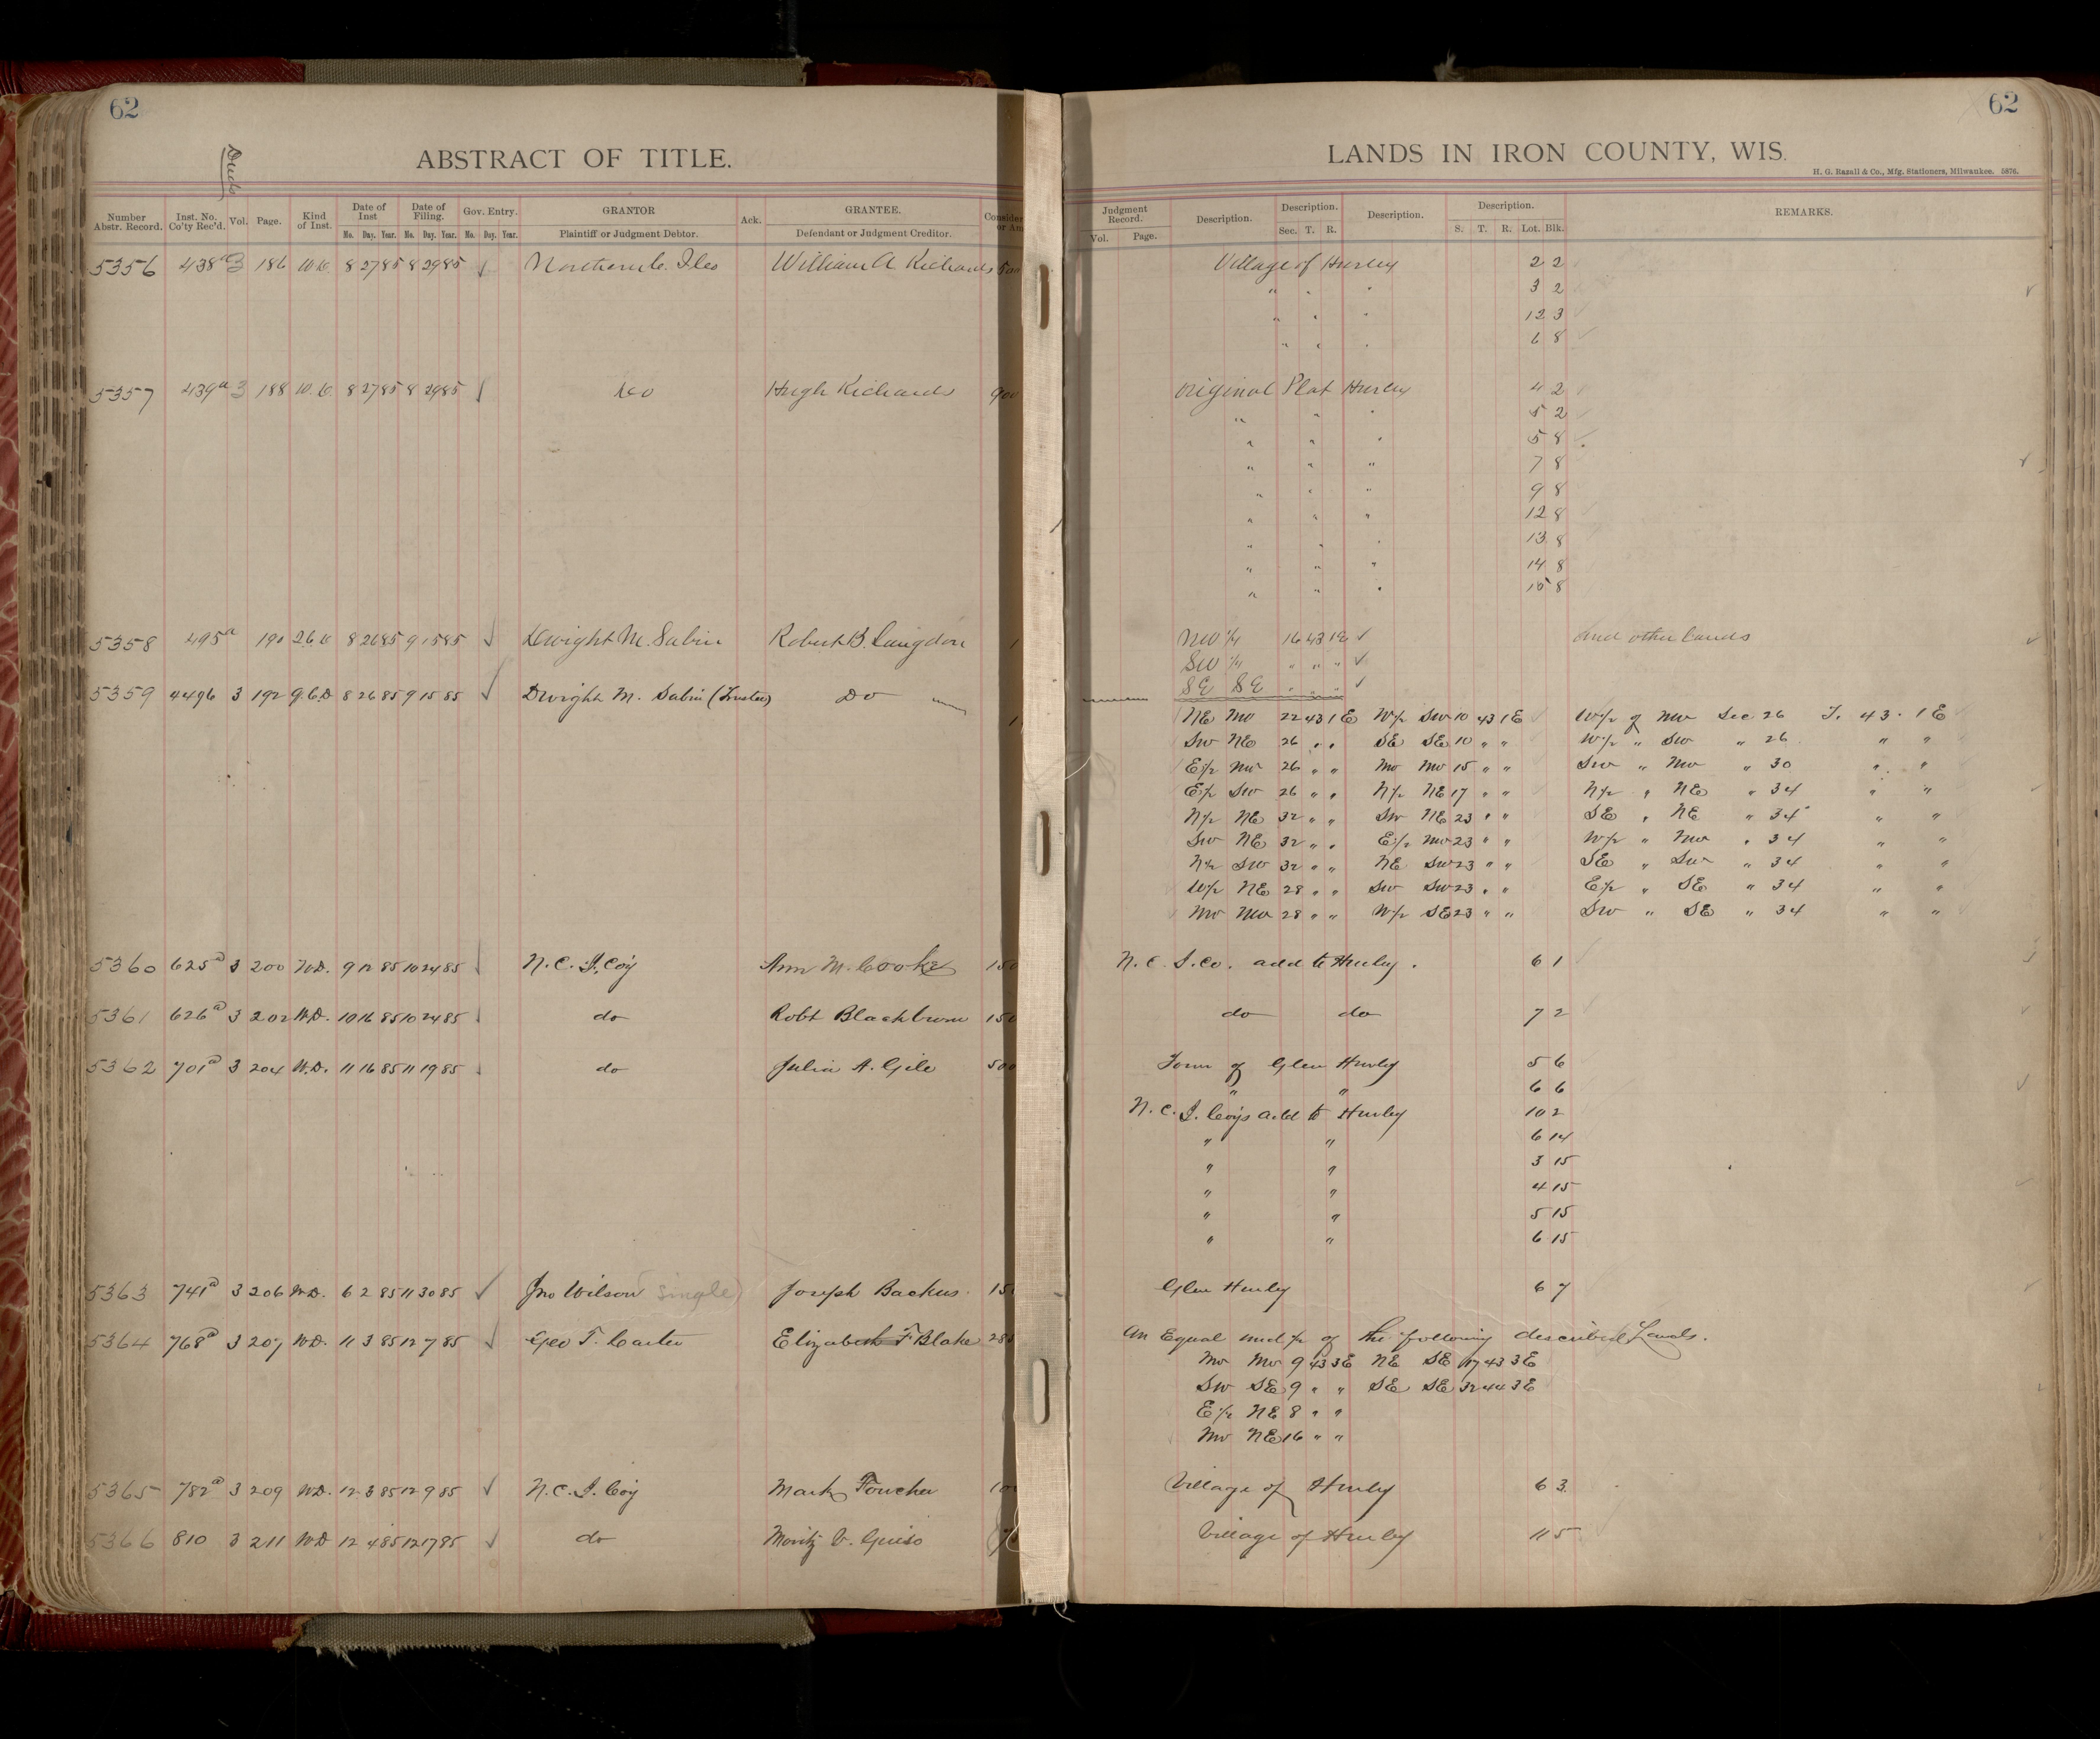 62
Deeds
ABSTRACT OF TITLE.
Number Abstr. Record. Inst. No. Co'ty Rec'd. Vol. Page. Kind of Inst. Date of Inst Mo. Day. Year. Date of Filing. Mo. Day. Year. Gov. Entry. Mo. Day. Year. GRANTOR Plaintiff or Judgment Debtor. Ack. GRANTEE. Defendant or Judgment Creditor.
5356 438a 3 186 8 27 85 8 29 85 William A Richards 500
5357 439a 3 188 8 27 85 8 29 85 Do Hugh Richards 900
5358 495a 190 8 26 85 9 15 85 Dwight M. Sabin Robert B. Langdon 1
5359 4496 3 192 Q.C.D 8 26 85 9 15 85 Dwight M. Sabin (Trustee) Do 1
5360 625a 3 200 W.D. 9 12 85 10 24 85 N.C. I. Coy Ann M. Cooke 150
5361 626a 3 202 W.D. 10 16 85 10 24 85 do Robt Blackburn 150
5362 701a 3 204 W.D. 11 16 85 11 19 85 do Julia A. Gile 500
5363 741a 3 206 W.D. 6 2 85 11 30 85 Jno Wilson (Single) Joseph Backus. 15
5364 768a 3 207 W.D. 11 3 85 12 7 85 Geo T. Carter Elizabeth F Blake 28
5365 782a 3 209 W.D. 12 3 85 12 9 85 N.C. I. Coy Mark Foucher 10
5366 810 3 211 W.D 12 4 85 12 17 85 do Moritz
62
LANDS IN IRON COUNTY, WIS.
H. G. Razall & Co., Mfg. Stationers, Milwaukee. 5876.
Judgment Record. Vol. Page. Description. Description. Sec. T. R. Description. Description. S. T. R. Lot. Blk. REMARKS.
Village of Hurley 2 2
" " " 3 2
" " " 12 3
" " " 6 8
Original Plat Hurley 4 2
" " " 5 2
" " " 5 8
" " " 7 8
" " " 9 8
" " " 12 8
" " " 13 8
" " " 14 8
" " " 15 8
NW 1/4 16 43 1E and other lands
SW 1/4 " " "
SE SE " " "
NE NW 22 43 1 E W/2 SW 10 43 1 E W/2 of NW Sec 26 T. 43. 1 E
SW NE 26 " " SE SE 10 " " W/2 " SW " 26 " "
E/2 NW 26 " " NW NW 15 " " SW " NW " 30 " "
E/2 SW 26 " " N/2 NE 17 " " N/2 " NE " 34 " "
N/2 NE 32 " " SW NE 23 " " SE " NE " 34 " "
SW NE 32 " " E/2 NW 23 " " W/2 " NW " 34 " "
N/2 SW 32 " " NE SW 23 " " SE " SW " 34 " "
W/2 NE 28 " " SW SW 23 " " E/2 " SE " 34 " "
NW NW 28 " " W/2 SE 23 " " SW " SE " 34 " "
N. C. I. Co. add to Hurley. 6 1
do do 7 2
Town of Glen Hurley 5 6
" " 6 6
N. C. I. Coy's add to Hurley 10 2
" " 6 14
" " 3 15
" " 4 15
" " 5 15
" " 6 15
Glen Hurley 6 7
An Equal und 1/2 of the following described Lands.
NW NW 9 43 3E NE SE 17 43 3E
SW SE 9 " " SE SE 32 44 3E
E/2 NE 8 " "
NW NE 16 " "
Village of Hurley 6 3
Village of Hurley 11 5